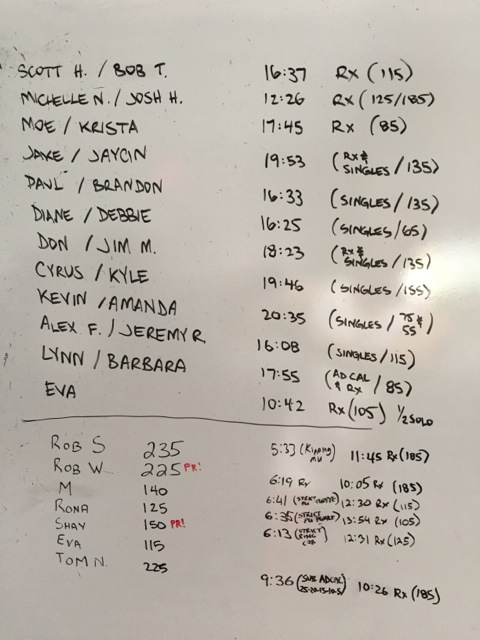 SCOTT H. / BOB T. 16:37 Rx (115)
MICHELLE N. / JOSH H. 12:26 Rx (125/185)
MOE / KRISTA 17:45 Rx (85)
JAKE / JAYCIN 19:53 (Rx & SINGLES / 135)
PAUL / BRANDON 16:33 (SINGLES / 135)
DIANE / DEBBIE 16:25 (SINGLES / 65)
DON / JIM M. 18:23 (Rx & SINGLES / 135)
CYRUS / KYLE 19:46 (SINGLES / 155)
KEVIN / AMANDA 20:35 (SINGLES / 75 & 55)
ALEX F. / JEREMY R. 16:08 (SINGLES / 115)
LYNN / BARBARA 17:55 (AD CAL & Rx / 85)
EVA 10:42 Rx (105) 1/2 SOLO
ROB S 235 5:33 (Kipping MU) 11:45 Rx (185)
ROB W. 225 PR! 6:19 Rx 10:05 Rx (185)
M 140 6:41 (STRICT MU) 12:30 Rx (115)
RONA 125 6:35 (STRICT MU) 13:54 Rx (105)
SHAY 150 PR! 6:13 (STRICT RING) 12:31 Rx (125)
EVA 115
TOM N. 225 9:36 (SUB AD CAL 25-20-15-10-5) 10:26 Rx (185)